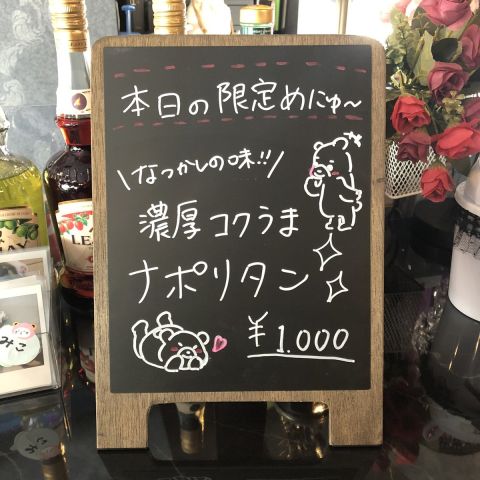 本日の限定めにゅ〜
\なつかしの味!!/
濃厚コクうま
ナポリタン
¥1.000
みこ